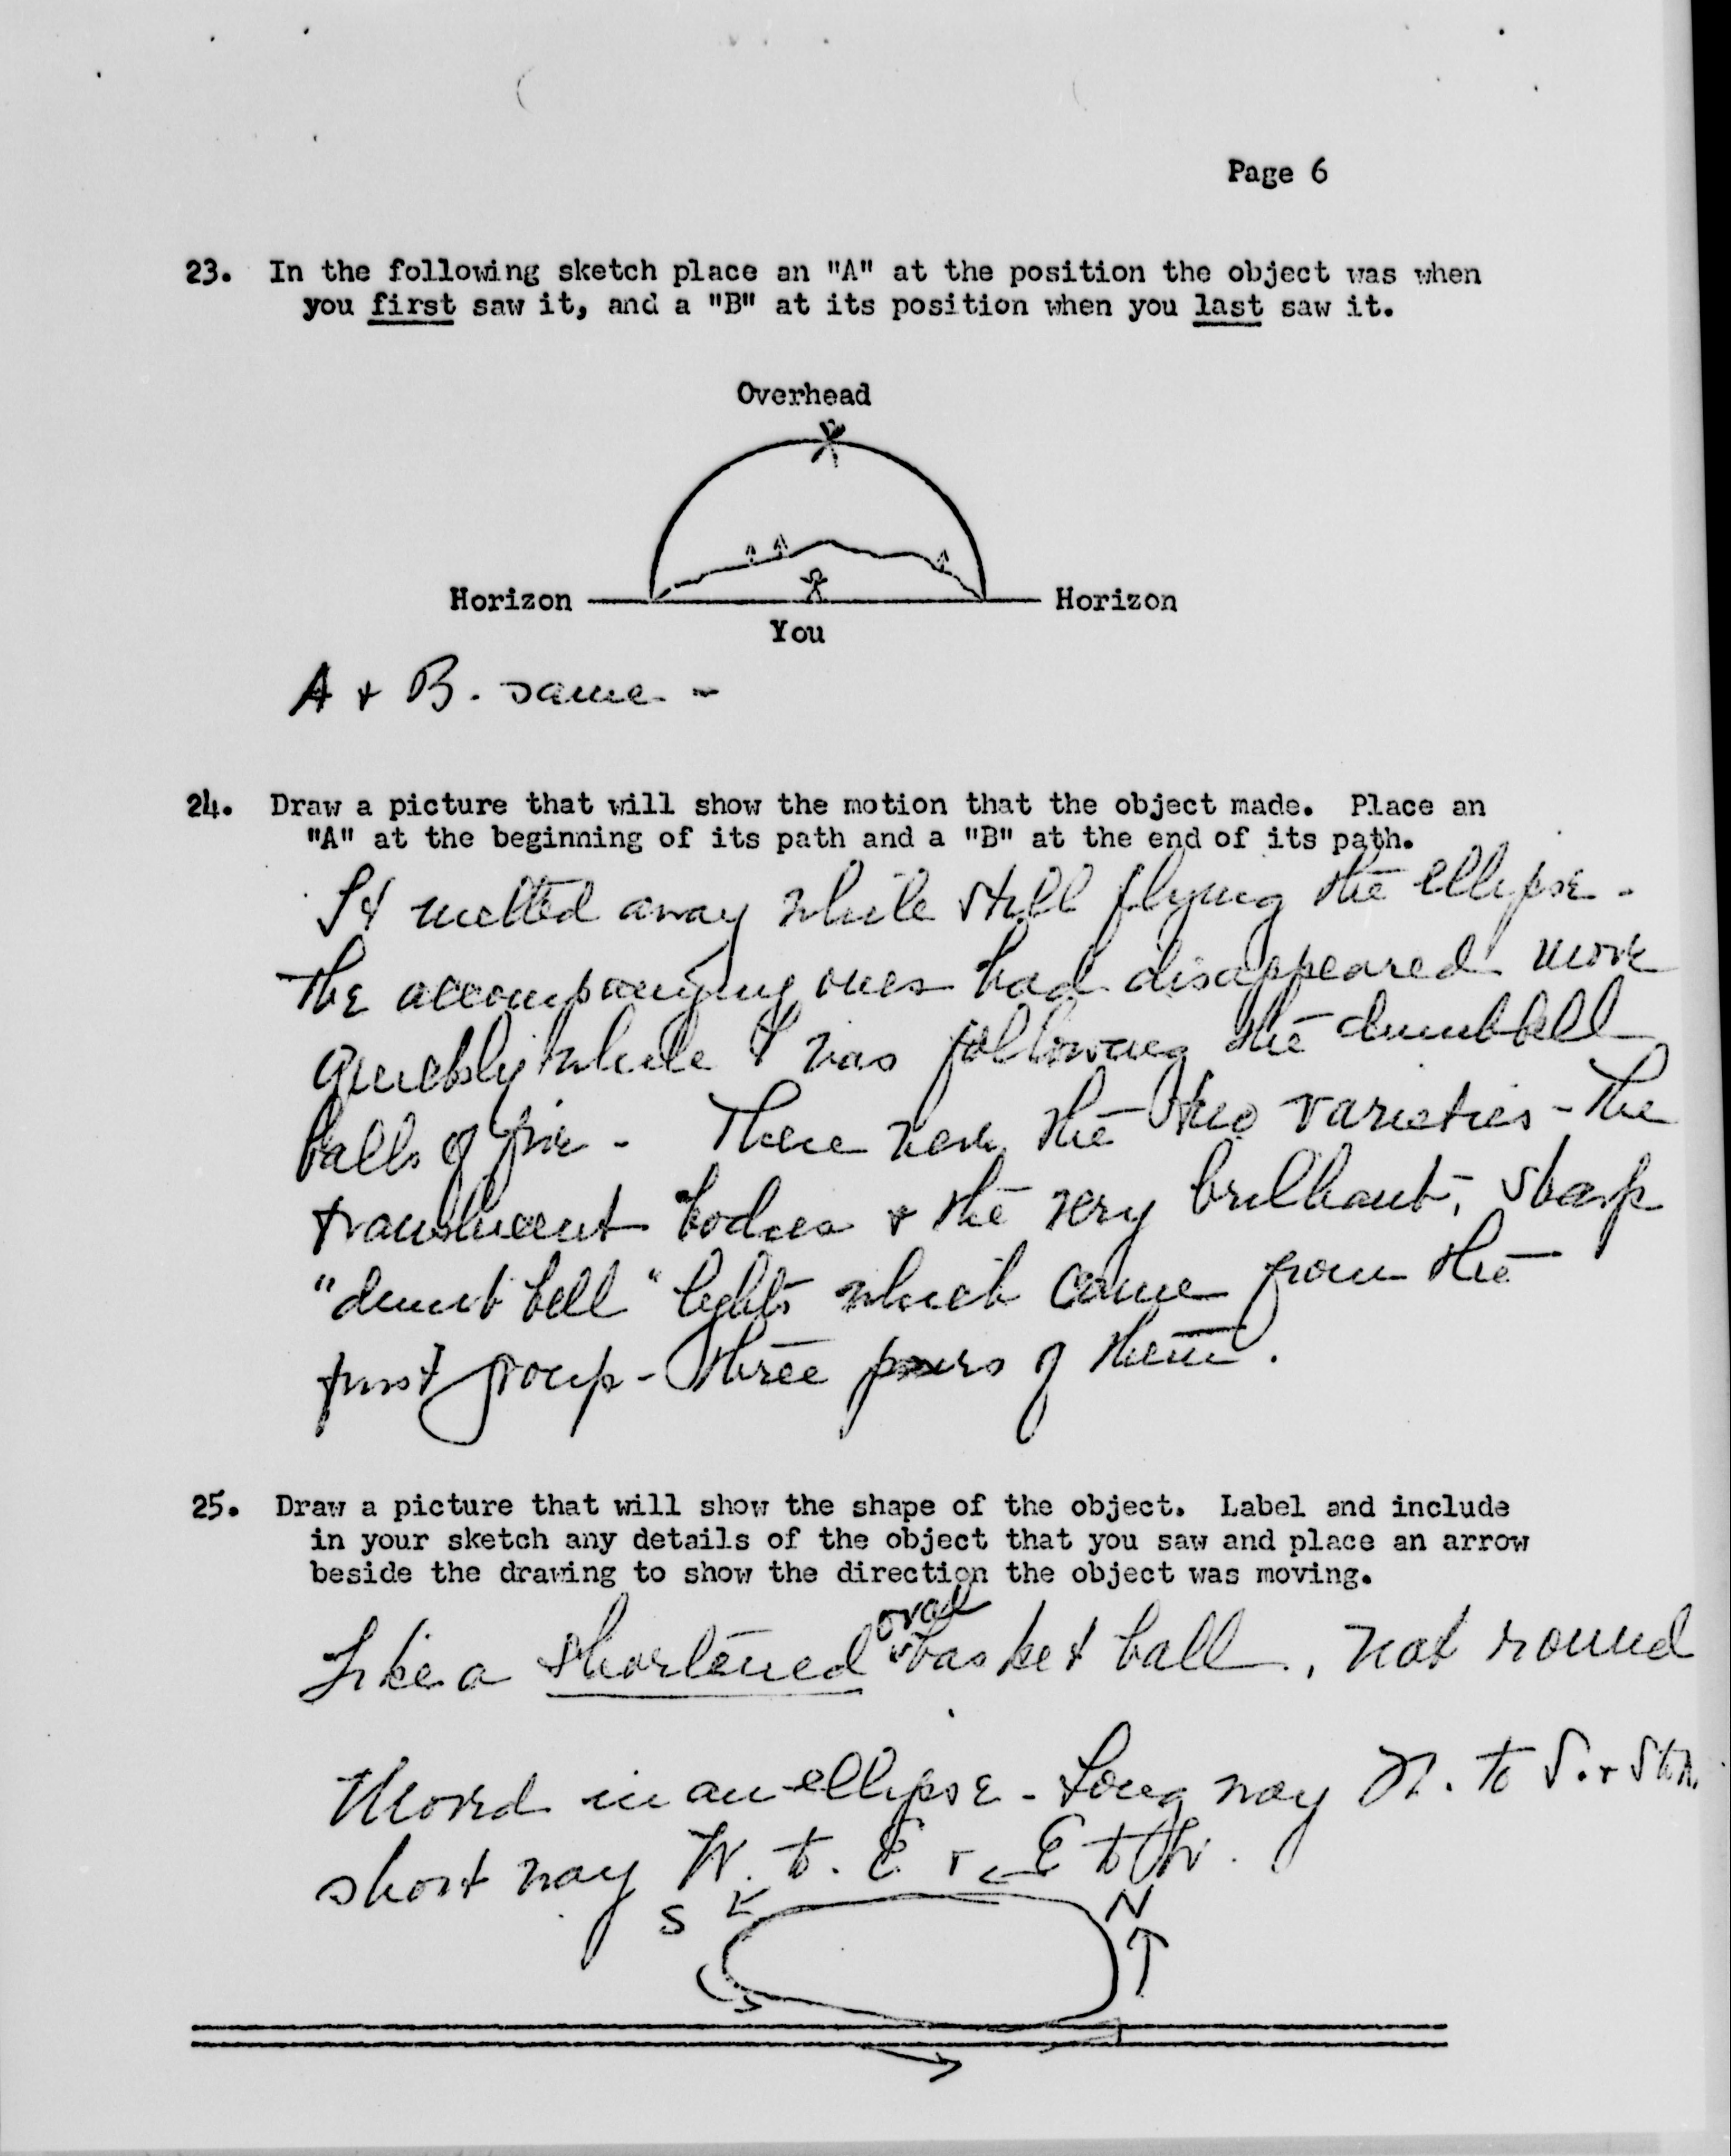 Page 6
23. In the following sketch place an "A" at the position the object was when
you first saw it, and a "B" at its position when you last saw it.
Overhead
Horizon Horizon
You
A + B. same -
24. Draw a picture that will show the motion that the object made. Place an
"A" at the beginning of its path and a "B" at the end of its path.
It melted away while still flying the ellipse -
The accompanying ones had disappeared more
quickly while I was following the dumbbell
balls of fire - There were the two varieties - the
translucent bodies + the very brilliant, sharp
"dumb bell" lights which came from the
first group - three pairs of them.
25. Draw a picture that will show the shape of the object. Label and include
in your sketch any details of the object that you saw and place an arrow
beside the drawing to show the direction the object was moving.
oval
Like a shortened basket ball, not round
Moved in an ellipse - Long way N. to S. + S to N.
short way W. to. E + E to W.
S N